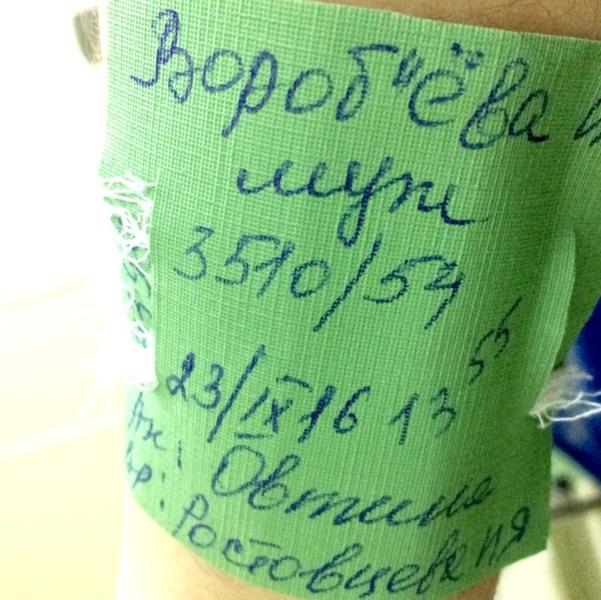 Вороб"ёва
муж
3510/54
23/IX 16 13 55
Ак: Овтина
вр: Ростовцева ИЯ